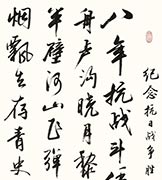 纪念抗日战争胜
八年抗战斗
舟卢沟晓月黎
半壁河山正弹
烟飘生存青史